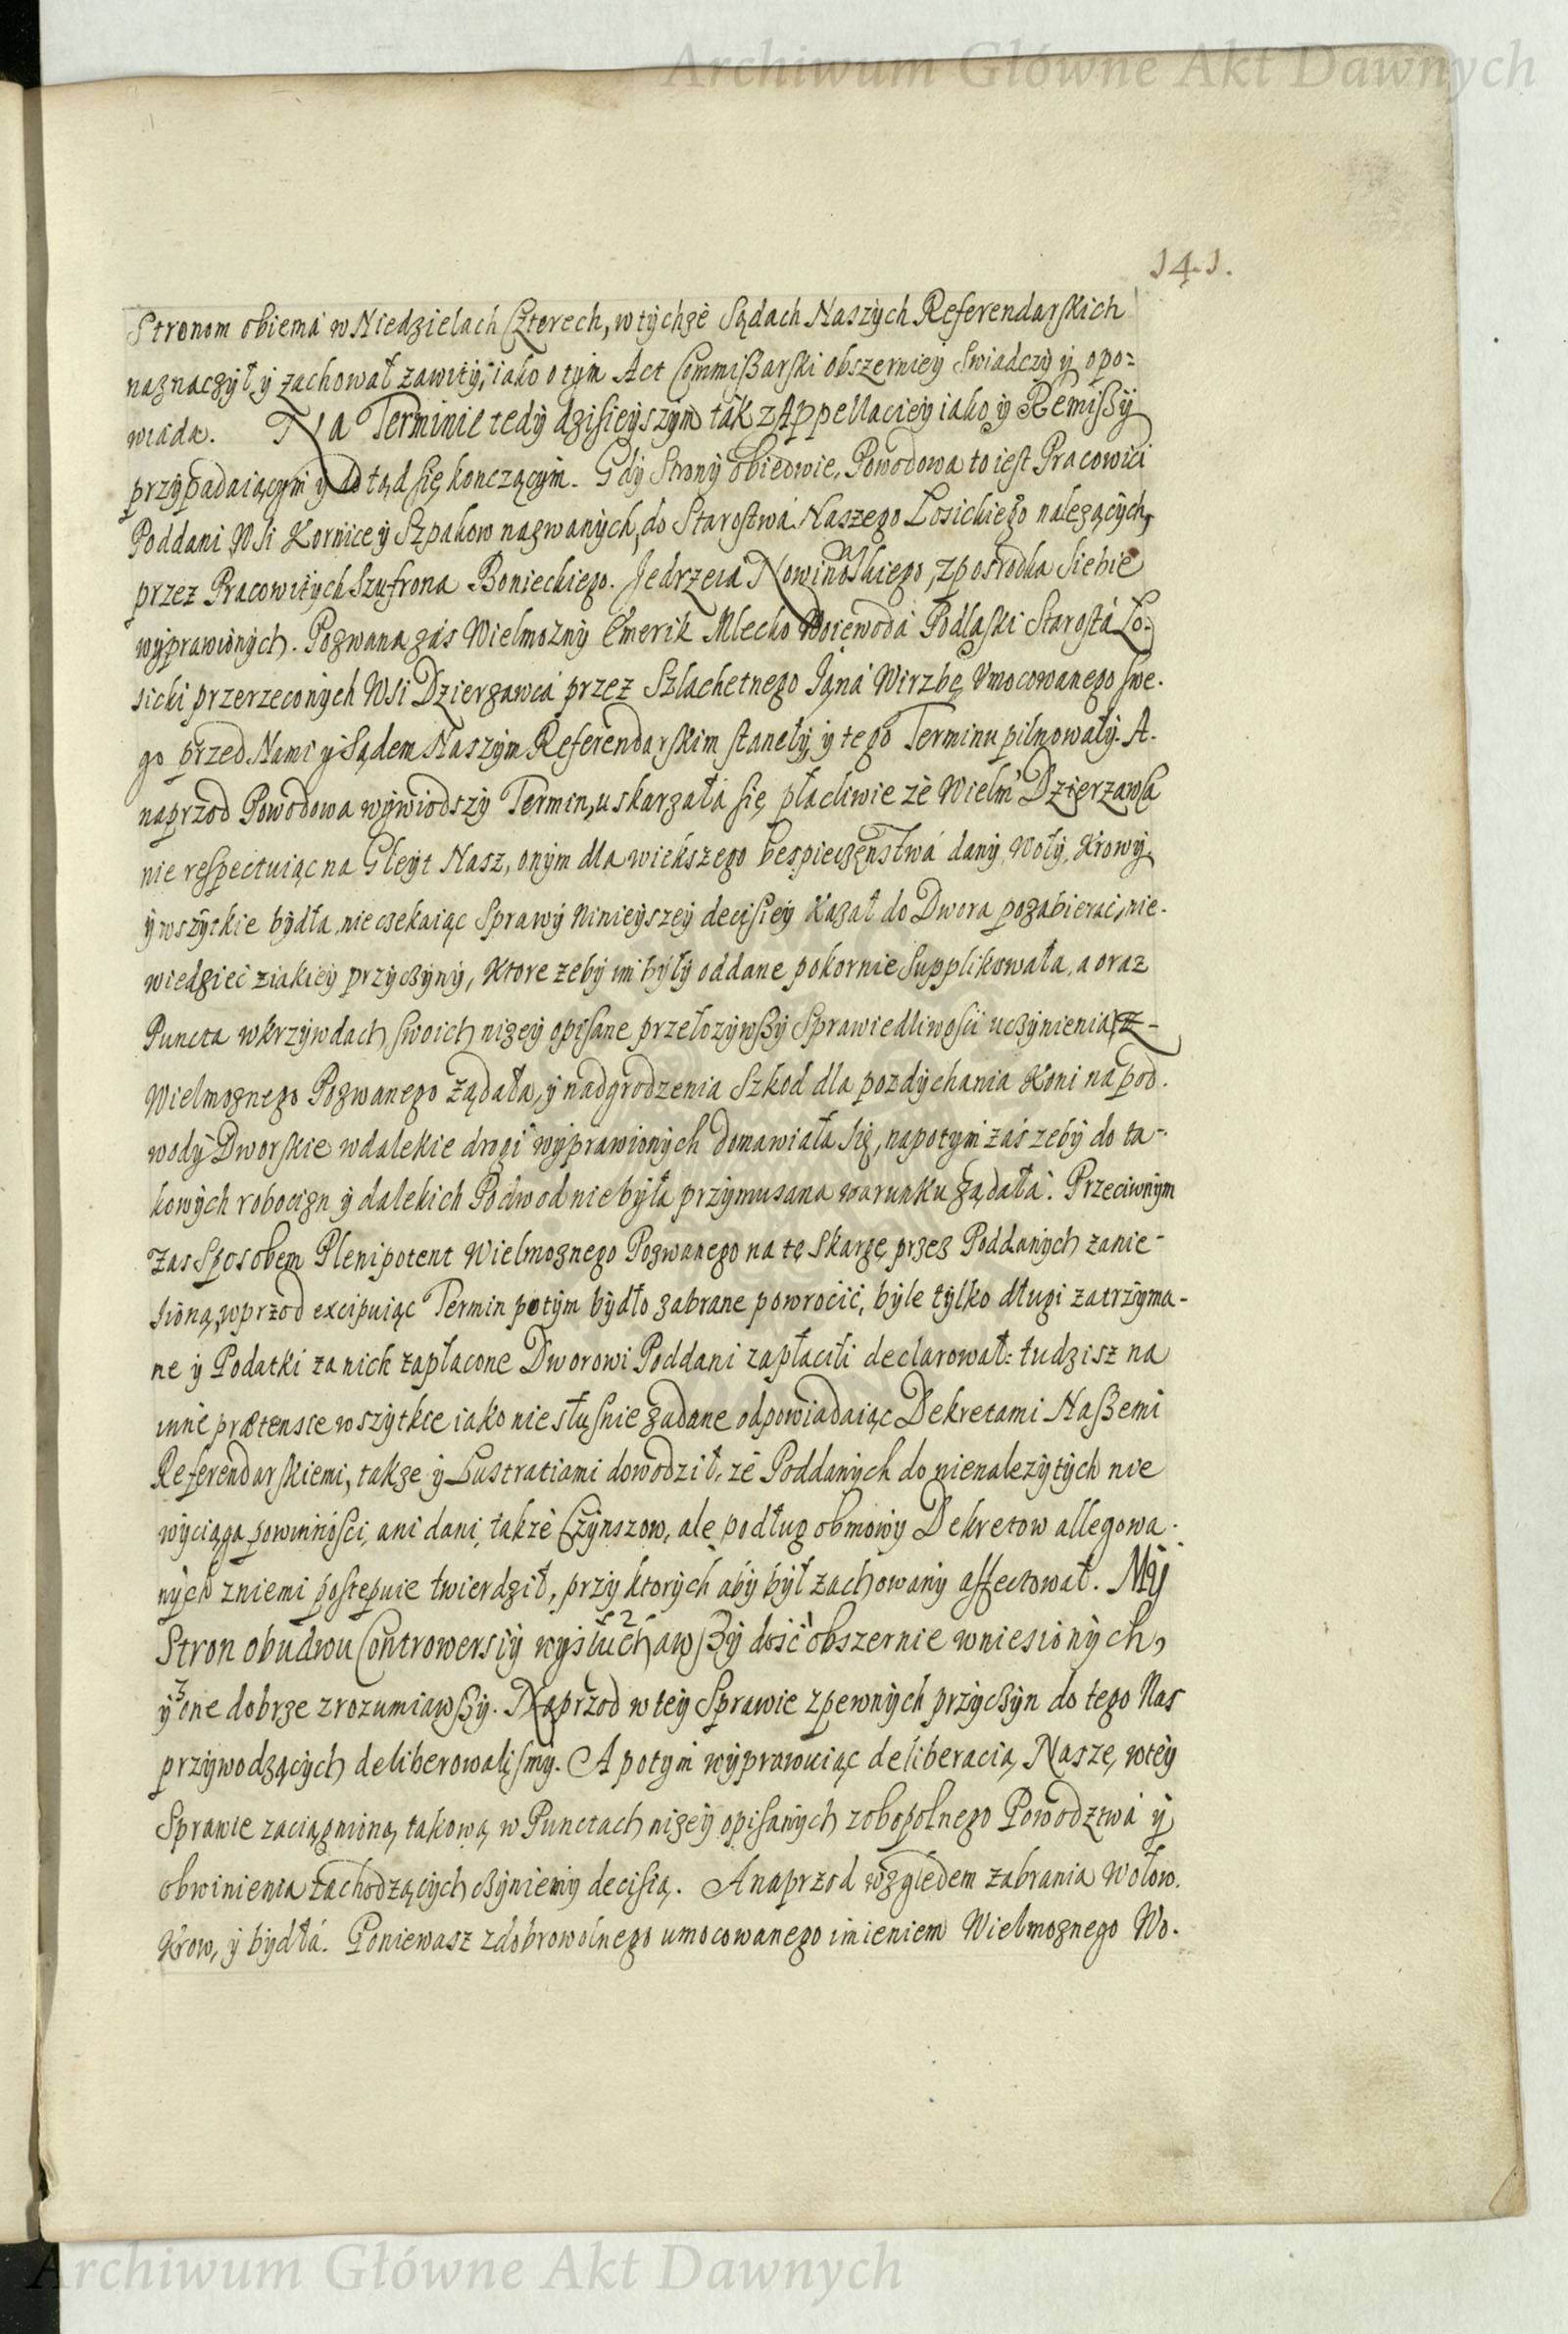 Archiwum Główne Akt Dawnych
141.
Stronom obiema w Niedzielach Czterech, w tychże Sądach Naszych Referendarskich
naznaczył y zachował zawity, iako o tym Act Commißarski obszerniey Swiadczy y opo=
wiada. Na Terminie tedy dzisieyszym ták z Appellaciey iako y Remißy
przypadaiącym y dotąd się konczącym. Gdy Strony obiedwie, Powodowa to iest Pracowici
Poddani Wsi Kornice y Szpakow nazwanych, do Starostwá Naszego Losickiego nalezących,
przez Pracowitych Szufrona Bonieckiego. Jedrzeia Nowinoskiego, zposrodka Siebie
wyprawionych. Pozwana zás Wielmozny Emerik Mlecko Woiewodá Podlaski Starostá Lo-
sicki przerzeconych Wsi Dzierzawcá przez Szlachetnego Jána Wirzbę Vmocowanego swe-
go przed Nami y Sądem Naszym Referendarskim staneły, y tego Terminu pilnowały. A-
naprzod Powodowa wywiodszy Termin, uskarzała się płacliwie ze Wielm Dzierzawca
nie respectuiąc na Gleyt Nasz, onym dla wiekszego bespieczęnstwá dany, Woły, Krowy,
y wszytkie bydła, nie czekaiąc Sprawy Ninieyszey decisiey Kazał do Dwora pozabierać, nie-
wiedzieć ziakiey przyczyny, Ktore zeby im były oddane pokornie Supplikowała, a oraz
Puncta w krzywdach swoich nizey opisane przełozywßy Sprawiedliwości uczynienia z-
Wielmoznego Pozwanego żądała, y nadgrodzenia Szkod dla pozdychania Koni na pod-
wody Dworskie w dalekie drogi wyprawionych domawiała się, napotym zaś zeby do ta-
kowych robocizn y dalekich Podwod nie była przymusana warunku ządała. Przeciwnym
zas Sposobem Plenipotent Wielmoznego Pozwanego na tę Skargę przez Poddanych zanie-
sioną, wprzod excipuiąc Termin potym bydło zabrane powrocić, byle tylko długi zatrzyma-
ne y Podatki za nich zapłacone Dworowi Poddani zapłacili declarował: tudzisz na
inne prætensie wszytkie iako niesłusnie zadane odpowiadaiąc Dekretami Naßemi
Referendarskiemi, takze y Lustratiami dowodził, ze Poddanych do nienalezytych nie
wyciąga powinności, ani dani, takze Czynszow, ale podług obmowy Dekretow allegowa-
nych z niemi postepuie twierdził, przy ktorych aby był zachowany affectował. My
Stron obudwu Controwersiy wysłuchawßy dość obszernie wniesionych,
y one dobrze zrozumiawßy. Naprzod w tey Sprawie z pewnych przyczyn do tego Nas
przywodzących deliberowalismy. A potym wyprawuiąc deliberacią Naszę, w tey
Sprawie zaciągnioną, takową w Punctach nizey opisanych z obopolnego Powodztwá y
obwinienia zachodzących czyniemy decisią. A naprzod względem zabrania Wołow.
Krow, y bydłá. Poniewasz z dobrowolnego umocowanego imieniem Wielmoznego Wo-
Archiwum Główne Akt Dawnych